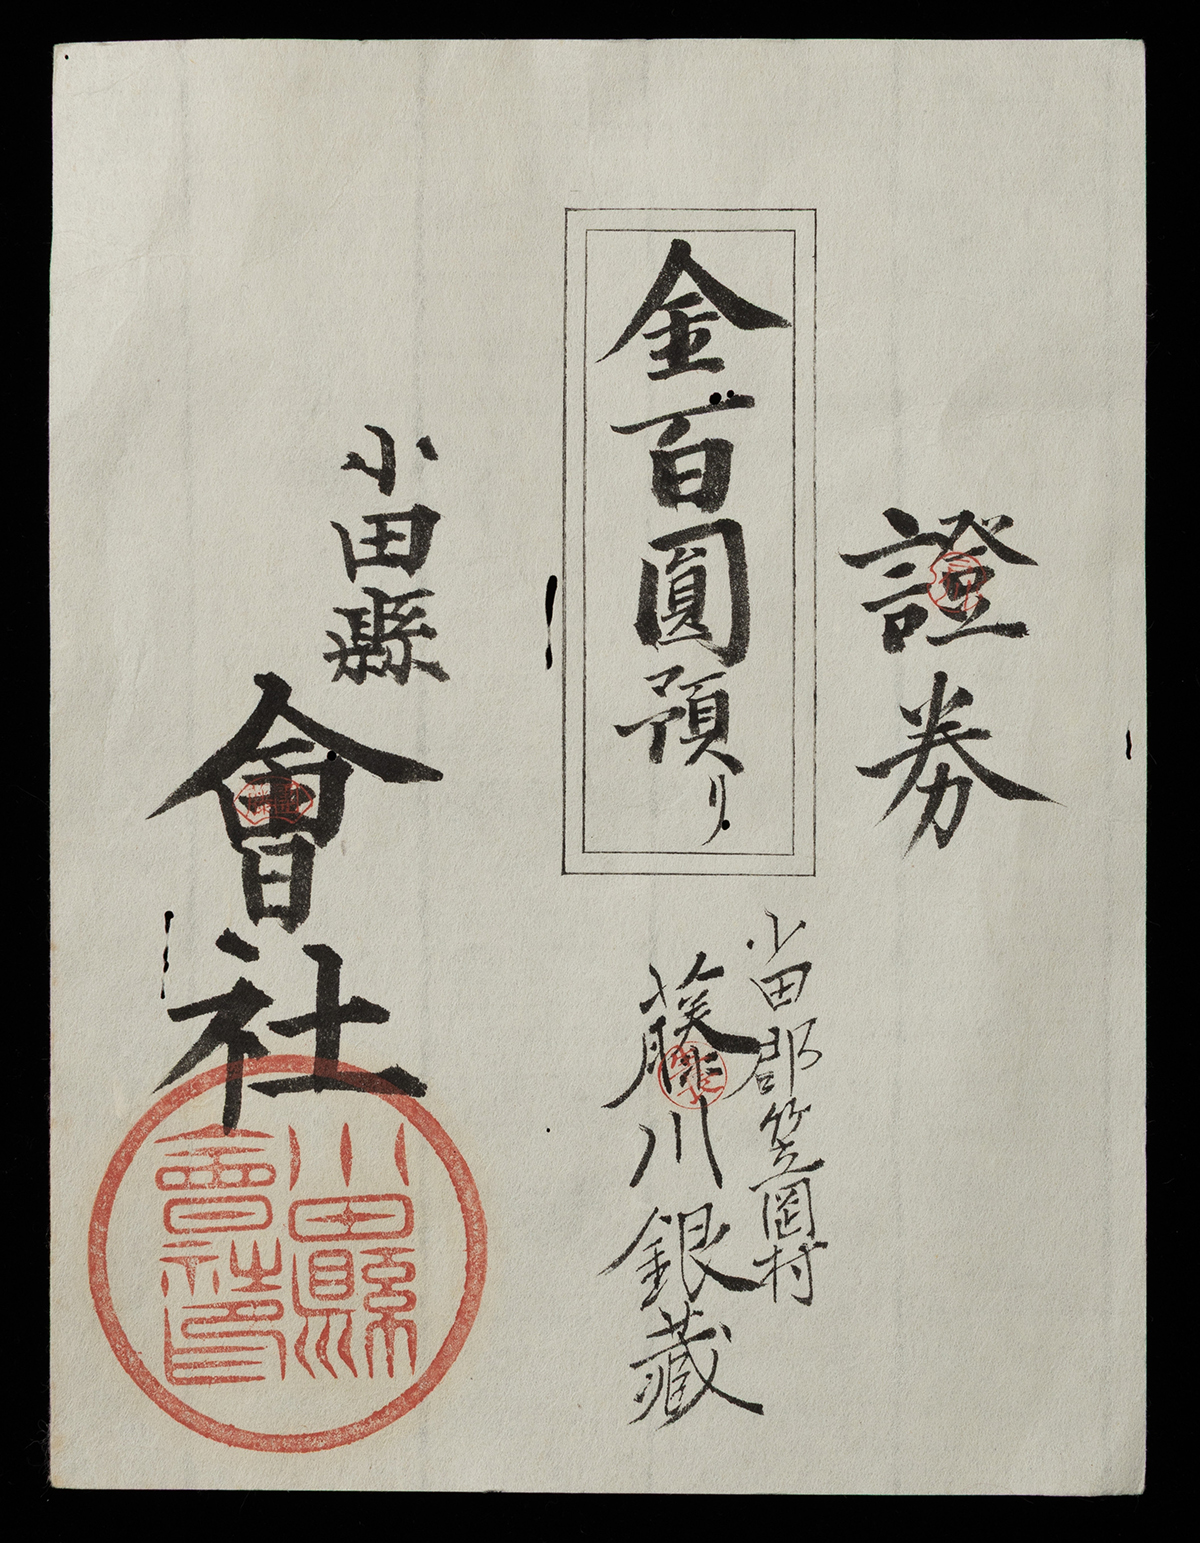 證券
金百圓預り
小田郡笠岡村
藤川銀藏
小田縣
會社
小田縣
會社印